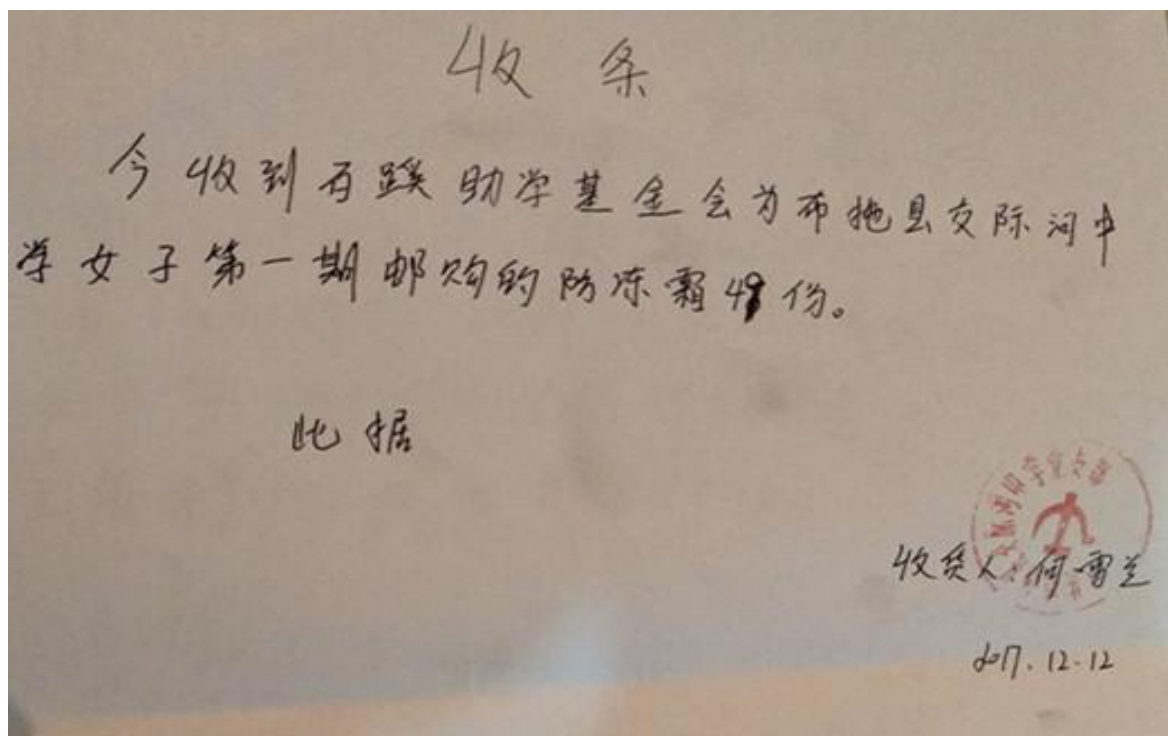 收条
今收到石蹊助学基金会为布拖县交际河中
学女子第一期邮购的防冻霜49份。
此据
收货人 何雪兰
2017.12.12